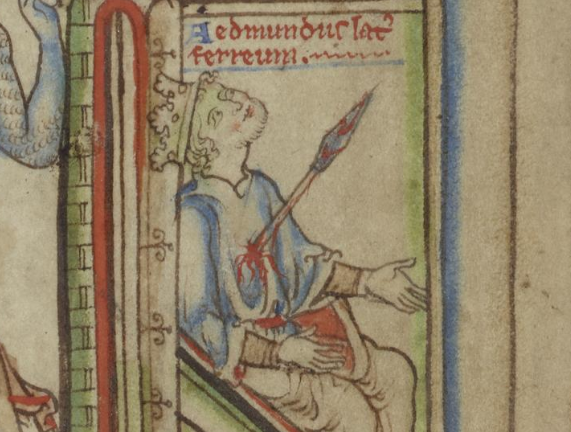 Aedmundus lat᾽
ferreum.